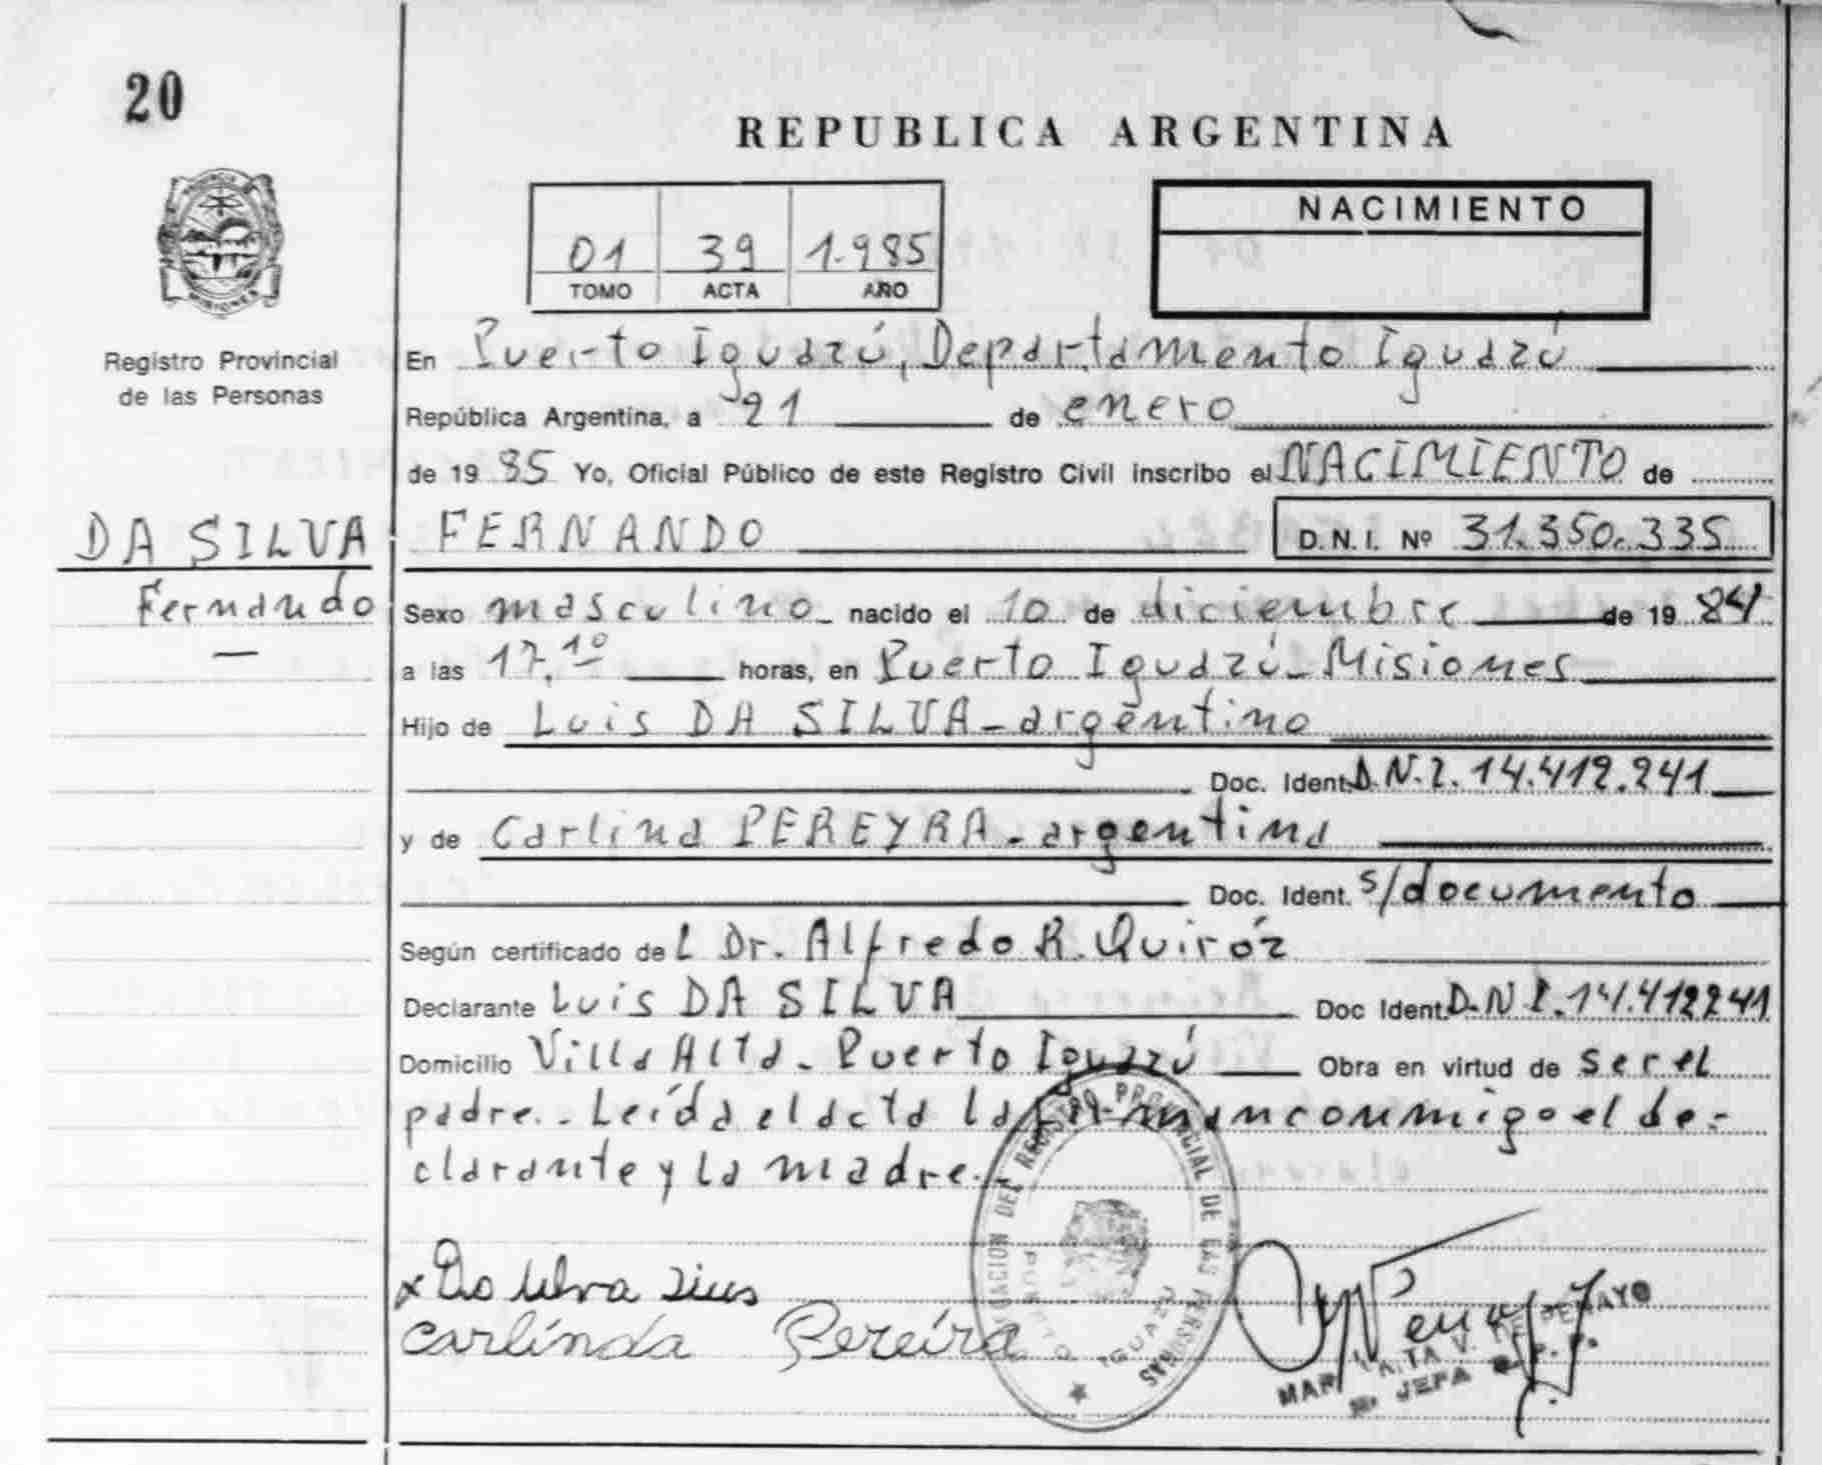 20
REPUBLICA ARGENTINA
NACIMIENTO
01 39 1.985
TOMO ACTA AÑO
MISIONES
Registro Provincial
de las Personas
En Puerto Iguazú, Departamento Iguazú
República Argentina, a 21 de enero
de 19 85 Yo, Oficial Público de este Registro Civil inscribo el NACIMIENTO de
DA SILVA FERNANDO D.N.I. Nº 31.350.335
Fernando Sexo masculino nacido el 10 de diciembre de 19 84
a las 17.10 horas, en Puerto Iguazú - Misiones
Hijo de Luis DA SILVA - argentino
Doc. Ident. D.N.I. 14.412.241
y de Carlina PEREYRA - argentina
Doc. Ident. s/documento
Según certificado de l Dr. Alfredo R. Quiróz
Declarante Luis DA SILVA Doc Ident. D.N.I. 14.412241
Domicilio Villa Alta - Puerto Iguazú Obra en virtud de ser el
padre.- Leída el acta la firman conmigo el de-
clarante y la madre.-
DEL REGISTRO PROVINCIAL DE LAS PERSONAS
PUERTO IGUAZU
x Da Silva Luis
Carlinda Pereira
JEFA